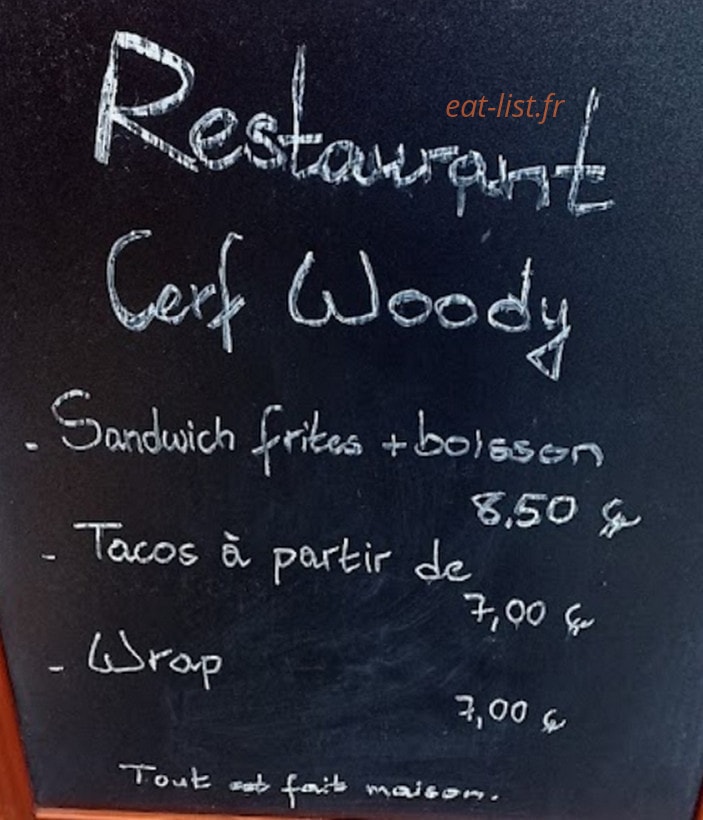 Restaurant
eat-list.fr
Cerf Woody
- Sandwich frites + boisson
8,50 €
- Tacos à partir de
7,00 €
- Wrap
7,00 €
Tout est fait maison.